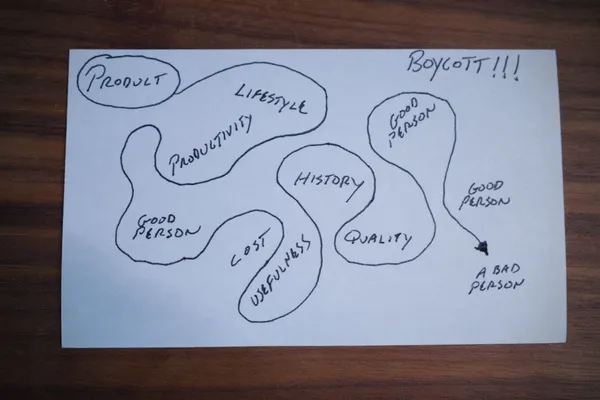 PRODUCT
BOYCOTT!!!
LIFESTYLE
PRODUCTIVITY
GOOD
PERSON
COST
USEFULNESS
HISTORY
QUALITY
GOOD
PERSON
GOOD
PERSON
A BAD
PERSON